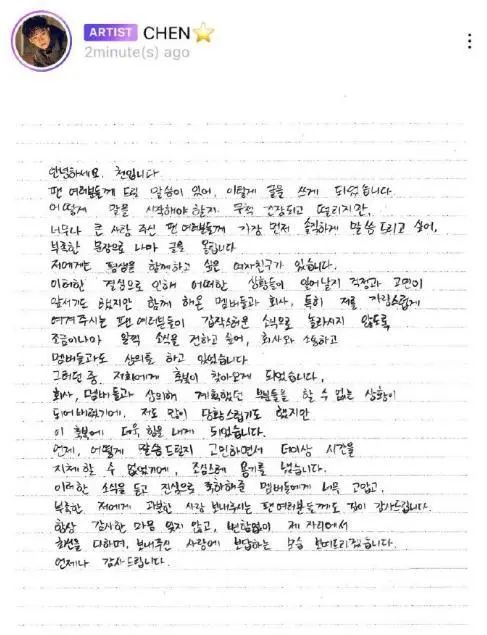 ARTIST CHEN
2minute(s) ago
안녕하세요. 첸입니다.
팬 여러분들께 드릴 말씀이 있어, 이렇게 글을 쓰게 되었습니다.
어떻게 말을 시작해야 할지. 무척 긴장되고 떨리지만,
너무나 큰 사랑 주신 팬 여러분들께 가장 먼저 솔직하게 말씀 드리고 싶어,
부족한 문장으로 나마 글을 올립니다
저에게는 평생을 함께하고 싶은 여자친구가 있습니다.
이러한 결심으로 인해 어떠한 상황들이 일어날지 걱정과 고민이
앞서기도 했지만 함께 해온 멤버들과 회사, 특히 저를 자랑스럽게
여겨주시는 팬 여러분들이 갑작스러운 소식으로 놀라시지 않도록
조금이나마 일찍 소식을 전하고 싶어, 회사와 소통하고
멤버들과도 상의를 하고 있었습니다
그러던 중. 저희에게 축복이 찾아오게 되었습니다.
회사, 멤버들과 상의해 계획했던 부분들을 할 수 없는 상황이
되어버렸기에, 저도 많이 당황스럽기도 했지만
이 축복에 더욱 힘을 내게 되었습니다.
언제, 어떻게 말씀드릴지 고민하면서 더이상 시간을
지체 할 수 없었기에, 조심스레 용기를 냈습니다.
이러한 소식을 듣고 진심으로 축하해준 멤버들에게 너무 고맙고,
부족한 저에게 과분한 사랑 보내주시는 팬 여러분들께도 깊이 감사드립니다.
항상 감사한 마음 잊지 않고, 변함없이 제 자리에서
최선을 다하며, 보내주신 사랑에 보답하는 모습 보여드리겠습니다.
언제나 감사드립니다.